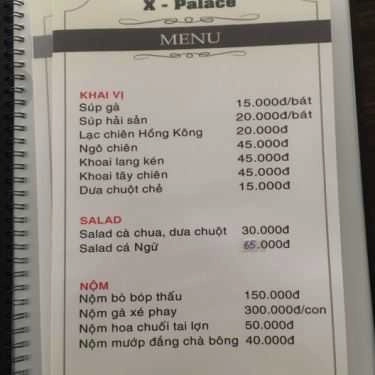 X - Palace
MENU
KHAI VỊ
Súp gà 15.000đ/bát
Súp hải sản 20.000đ/bát
Lạc chiên Hồng Kông 20.000đ
Ngô chiên 45.000đ
Khoai lang kén 45.000đ
Khoai tây chiên 45.000đ
Dưa chuột chẻ 15.000đ
SALAD
Salad cà chua, dưa chuột 30.000đ
Salad cá Ngừ 65.000đ
NỘM
Nộm bò bóp thấu 150.000đ
Nộm gà xé phay 300.000đ/con
Nộm hoa chuối tai lợn 50.000đ
Nộm mướp đắng chà bông 40.000đ